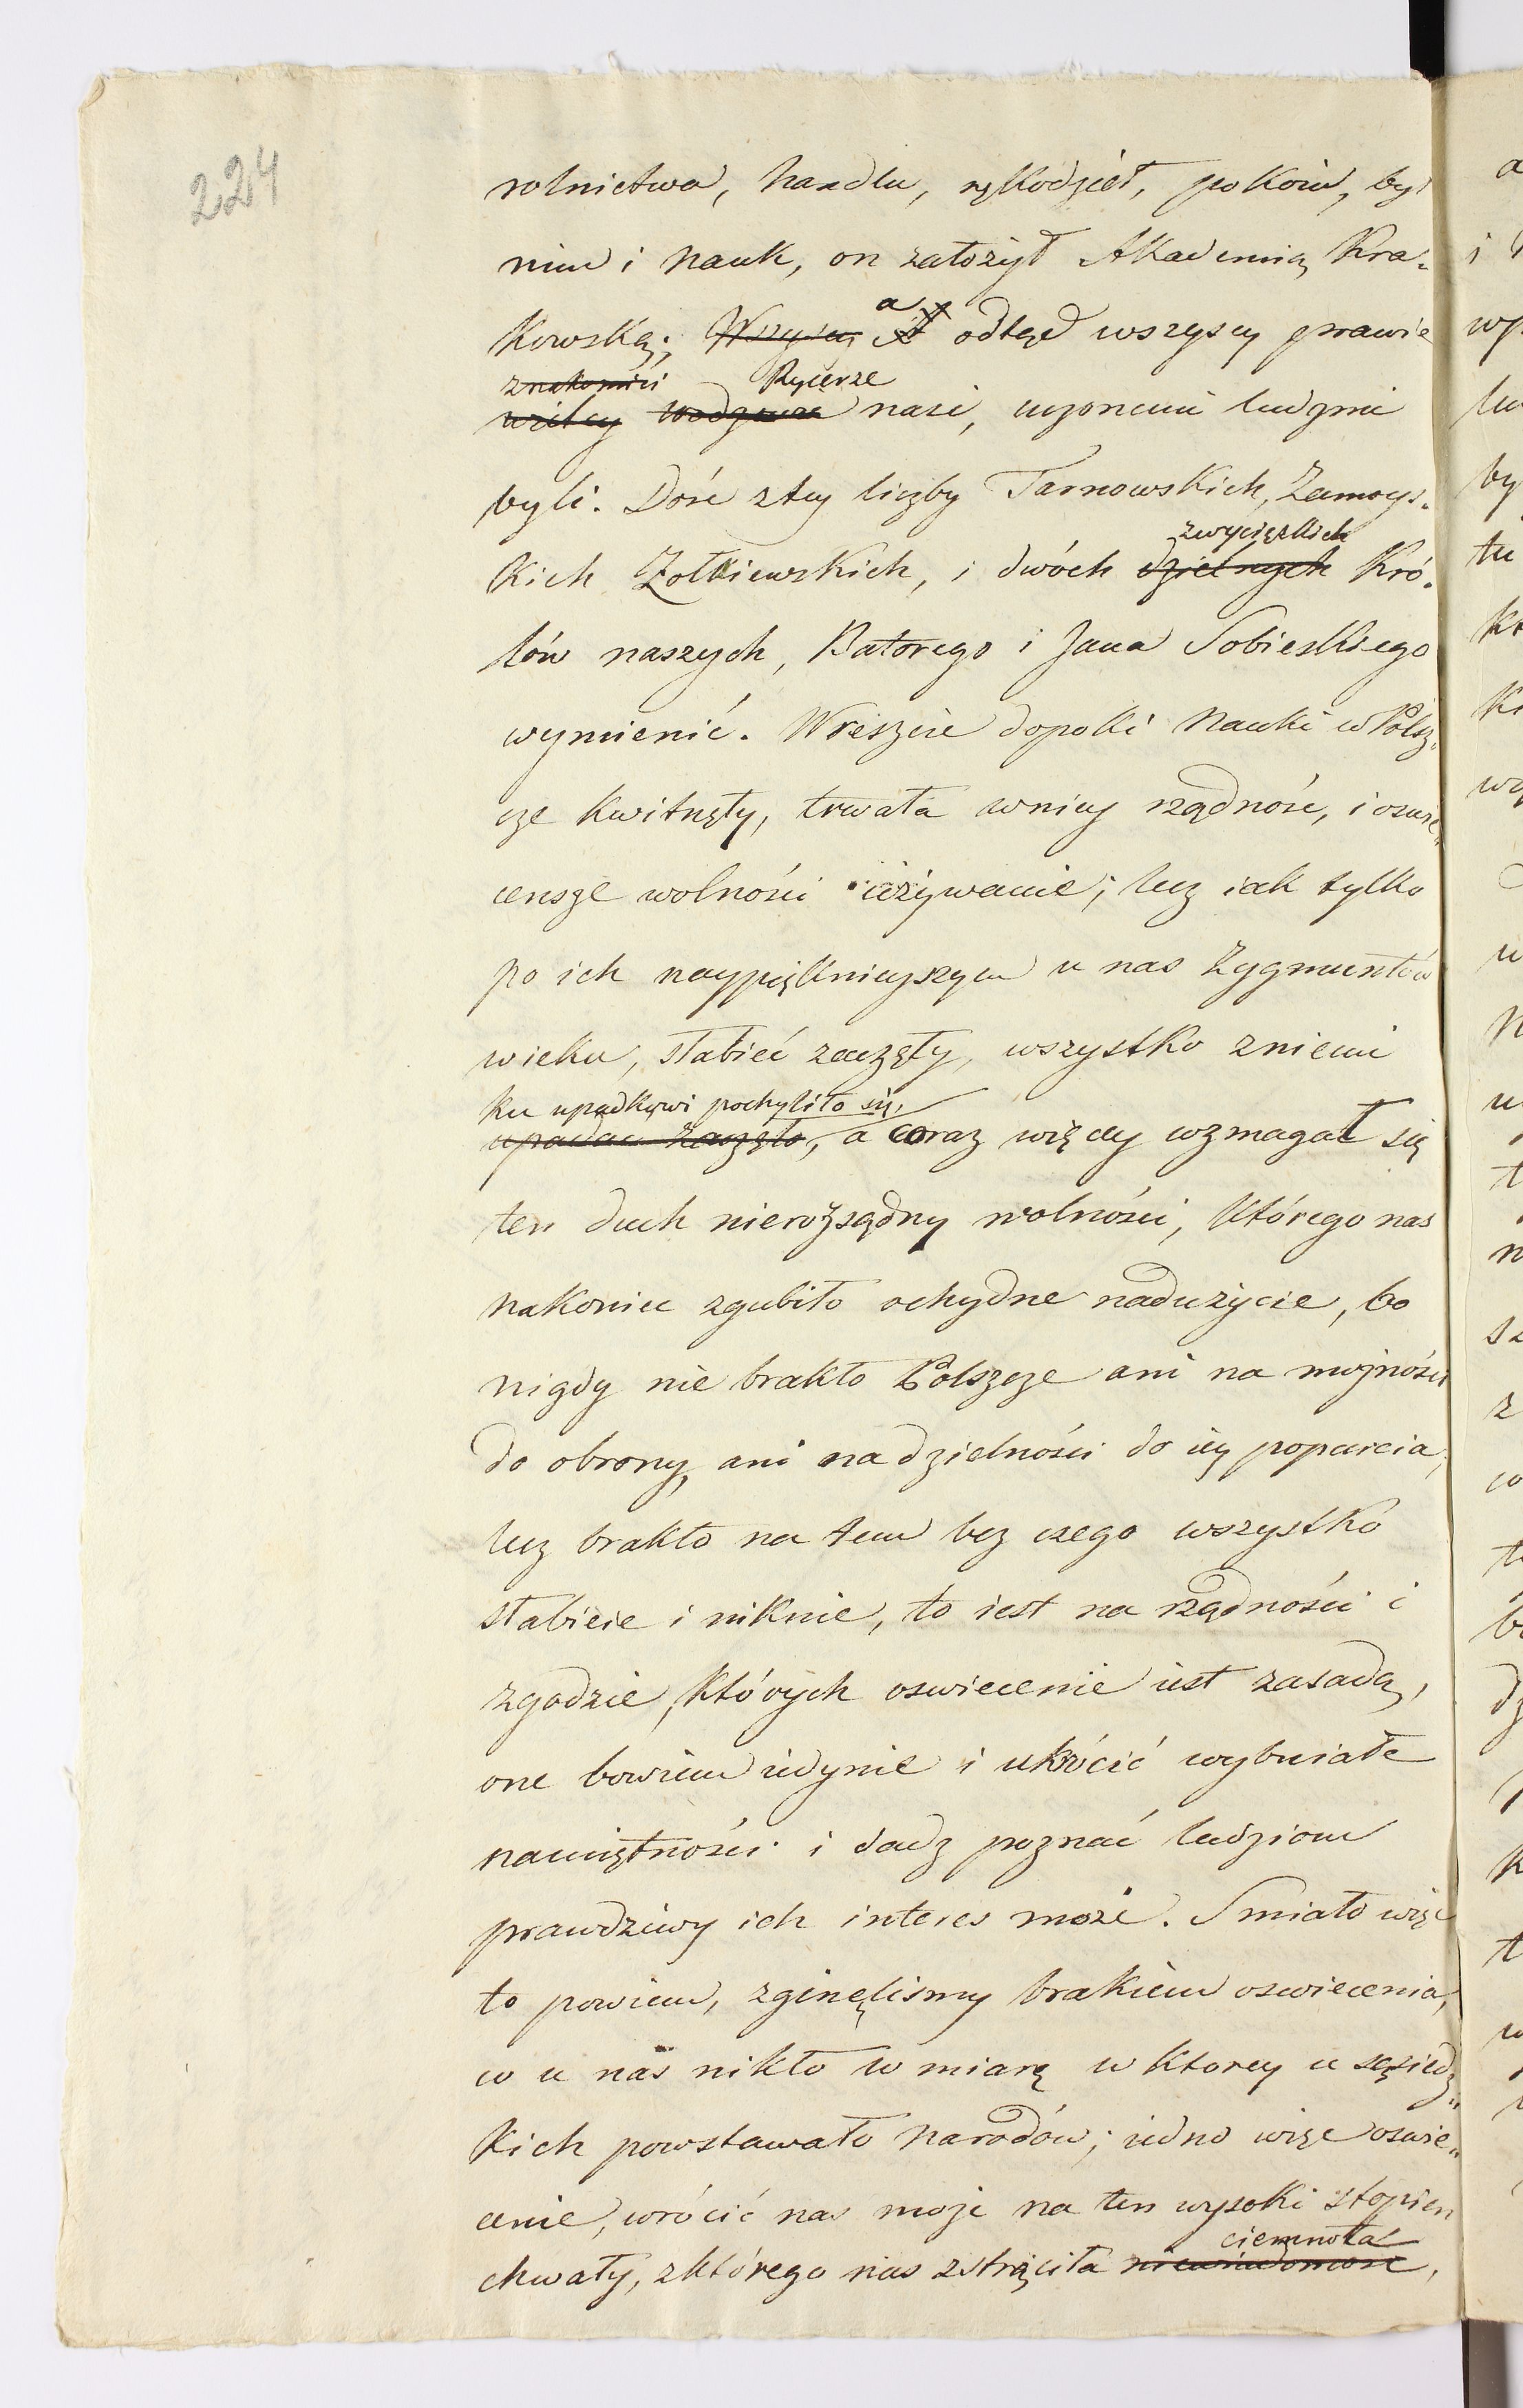 224
rolnictwa, handlu, rękodzieł, pokoiu, był
nim i Nauk, on założył Akademią Kra-
kowską; Wszyscy a odtąd wszyscy prawie
znakomici Rycerze
wielcy wodzowie nasi, uczonemi ludzmi
byli. Dość z tey liczby Tarnowskich, Zamoys-
zwycięzkich
kich Żołkiewskich, i dwóch dzielnych Kró-
lów naszych, Batorego i Jana Sobieskiego
wymienić. Wreszcie dopoki Nauki w Polsz-
cze kwitnęły, trwała w niey rządność, i oswie-
ceńsze wolności używanie; lecz iak tylko
po ich naypięknieyszym u nas Zygmuntów
wieku, słabieć zaczęły, wszystko z niemi
ku upadkowi pochyliło się,
upadac zaczęło, a coraz więcey wzmagał się
ten duch nierozsądny wolności, którego nas
nakoniec zgubiło ochydne nadużycie, bo
nigdy nie brakło Polszcze ani na możności
do obrony, ani na dzielności do iey poparcia,
lecz brakło na tem bez czego wszystko
słabieie i niknie, to iest na rządności i
zgodzie, których oswiecenie iest zasadą,
one bowiem iedynie i ukrócić wybuiałe
namiętności i dadz poznać ludziom
prawdziwy ich interes może. Smiało więc
to powiem, zginęlismy brakiem oswiecenia,
co u nas nikło w miarę w ktorey u sąsiedz-
kich powstawało Narodów; iedno więc oswie-
cenie, wrócić nas może na ten wysoki stopien
ciemnota
chwały, z którego nas ztrąciła niewiadomosc,